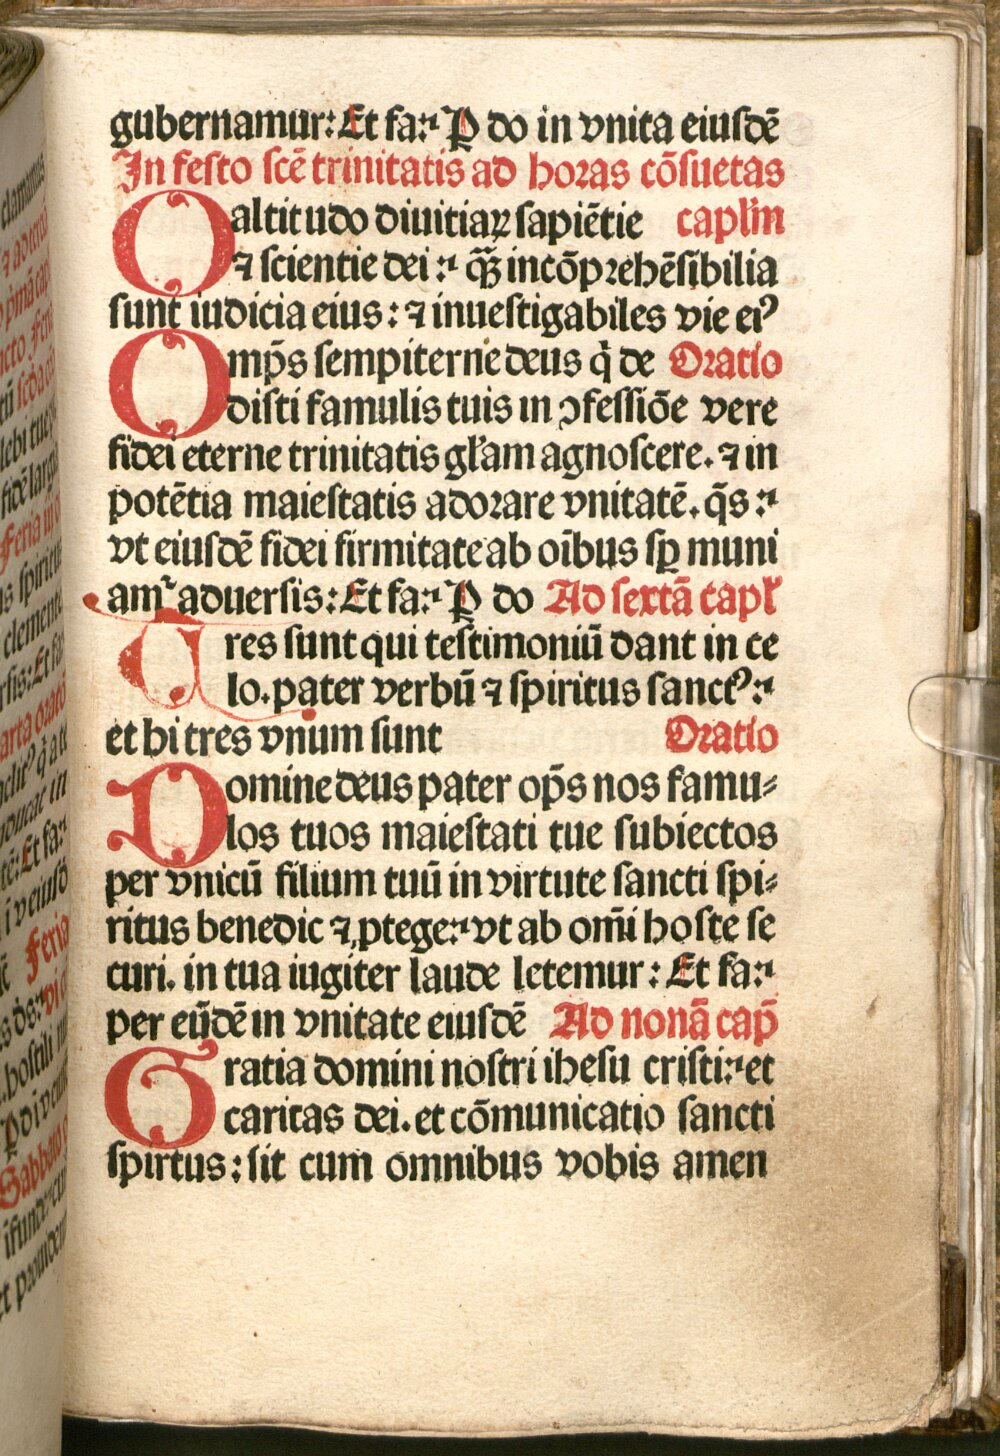 gubernamur: Et fa:⁊ P̲ do in vnita eiuſdē
In feſto ſcē trinitatis ad horas cōſuetas
O altitudo diuitiaꝝ ſapiētie capl'm
⁊ ſcientie dei:⁊ qᷓꝫ incōprehēſibilia
sunt iudicia eius: ⁊ inueſtigabiles vie eiꝰ
Omp̄s ſempiterne deus q̇ de Oratio
diſti famulis tuis in ꝯfeſſiōe vere
fidei eterne trinitatis gl'am agnoſcere. ⁊ in
potētia maieſtatis adorare vnitatē. q̄s:⁊
vt eiuſdē fidei firmitate ab oībus ſꝑ muni
amᷣ aduerſis: Et fa:⁊ P̲ do Ad ſextā capl'
Tres ſunt qui teſtimoniū dant in ce
lo. pater verbū ⁊ ſpiritus ſanctꝰ:⁊
et hi tres vnum ſunt Oratio
Domine deus pater op̄s nos famu⸗
los tuos maieſtati tue ſubiectos
per vnicū filium tuū in virtute ſancti ſpi⸗
ritus benedic ⁊ ꝓtege:⁊ vt ab om̄i hoſte ſe
curi. in tua iugiter laude letemur: Et fa:⁊
per eūdē in vnitate eiuſdē Ad nonā cap̄
Gratia domini noſtri iheſu criſti:⁊ et
caritas dei. et cōmunicatio ſancti
ſpirtus: ſit cum omnibus vobis amen